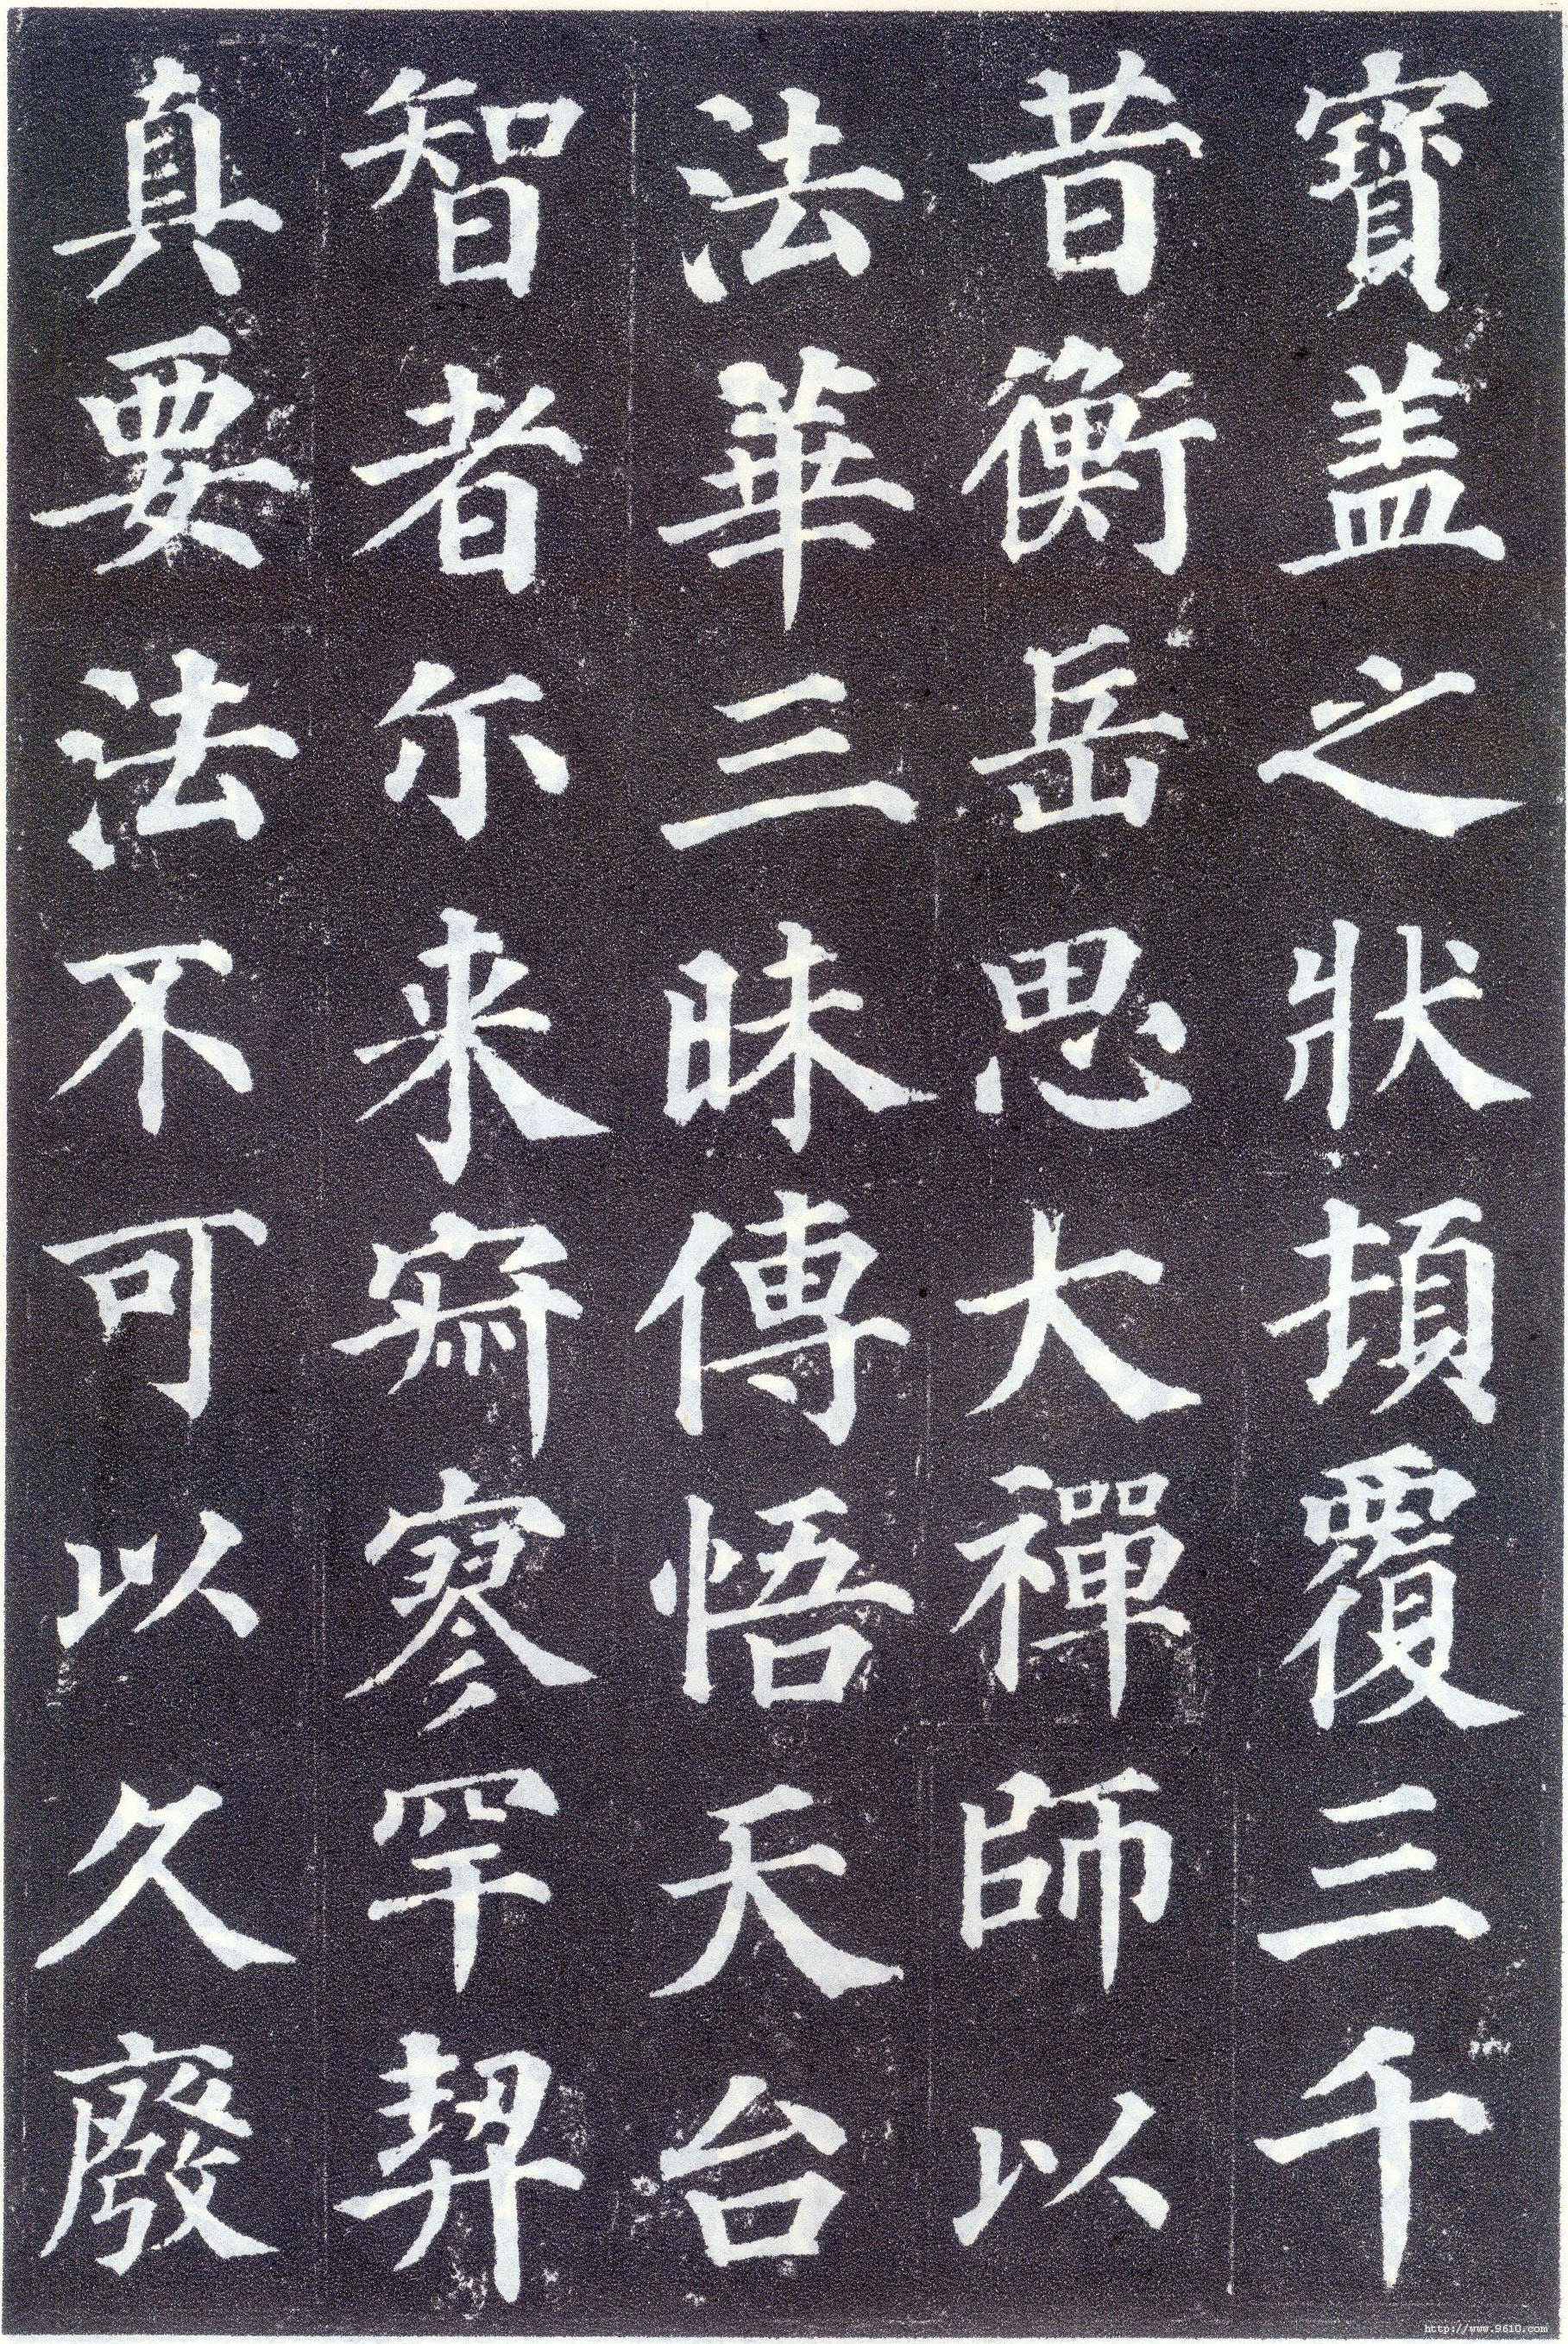 寶盖之狀頓覆三千
昔衡岳思大禪師以
法華三昧傳悟天台
智者尒来寂寥罕契
真要法不可以久廢
http://www.9610.com